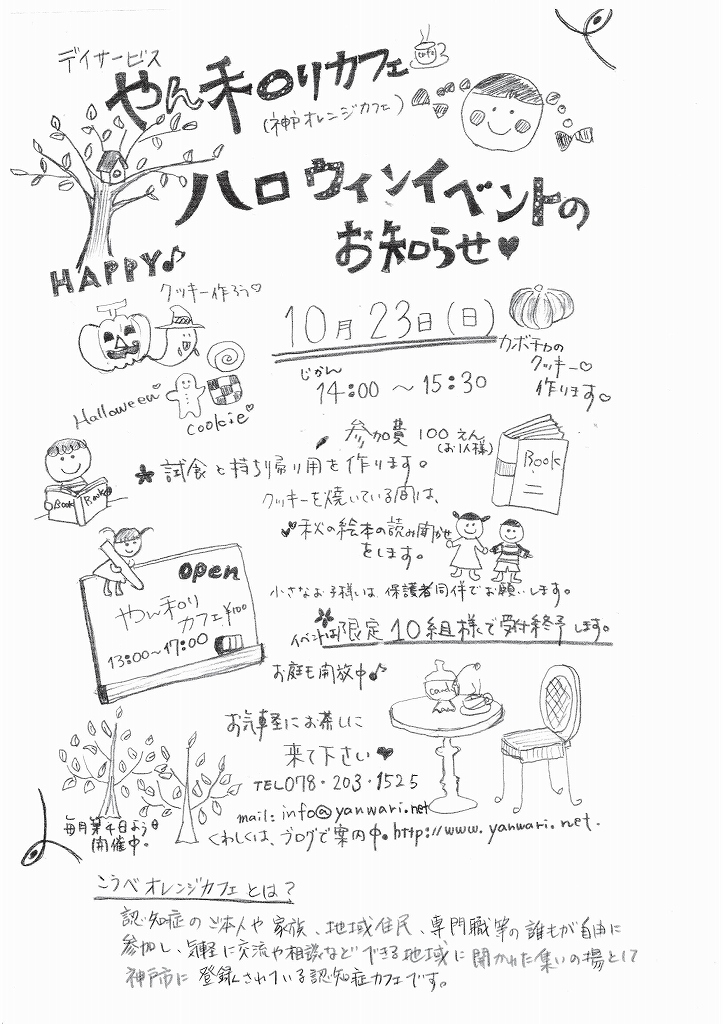 デイサービス
やん和りカフェ
cafe
(神戸オレンジカフェ)
ハロウィンイベントの
お知らせ♥
HAPPY♪
クッキー作ろう♡
10月23日(日)
カボチャの
クッキー♡
作ります♡
じかん
14:00 ～ 15:30
Halloween
cookie
参加費 100えん
(お1人様)
Book
試食と持ち帰り用を作ります。
Book
クッキーを焼いている間は、
秋の絵本の読み聞かせ
をします。
open
やん和り
カフェ¥100
13:00～17:00
小さなお子様は保護者同伴でお願いします。
イベントは限定10組様で受付終了します。
お庭も開放中♪
お気軽にお茶しに
来て下さい♥
TEL078・203・1525
mail: info@yanwari.net
毎月第4日よう日
開催中。
くわしくは、ブログで案内中。http://www.yanwari.net.
こうべオレンジカフェとは?
認知症のご本人や家族、地域住民、専門職等の誰もが自由に
参加し、気軽に交流や相談などできる地域に開かれた集いの場として
神戸市に登録されている認知症カフェです。